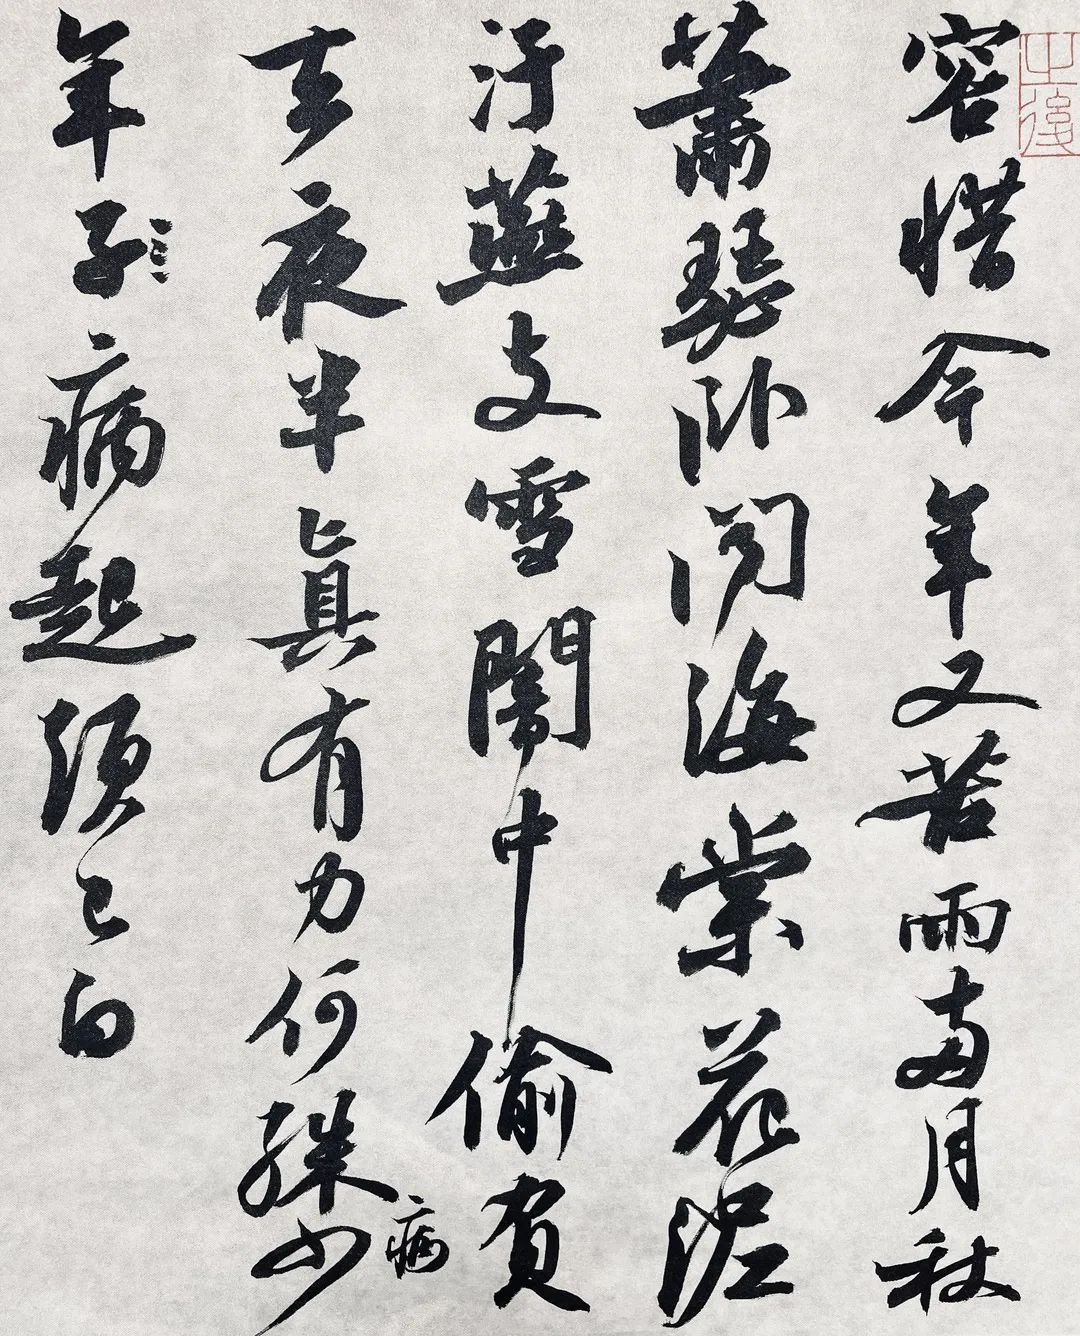 容惜今年又苦雨兩月秋
蕭瑟卧聞海棠花泥
汙燕支雪闇中偷負
去夜半眞有力何殊少
病
年子病起頭已白